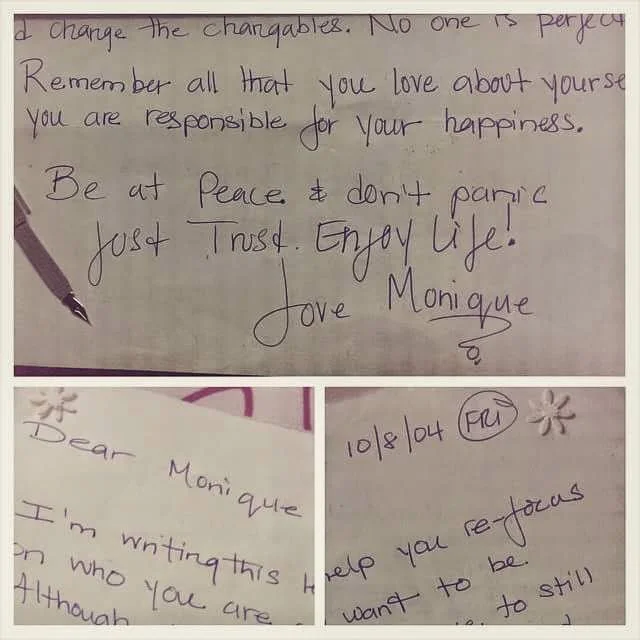 d change the changables. No one is perfect
Remember all that you love about yourse
you are responsible for your happiness.
Be at Peace & don't panic
Just Trust. Enjoy Life!
Love Monique
Dear Monique
I'm writing this h
on who you are
Although
10/8/04 FRI
help you re-focus
want to be.
to still